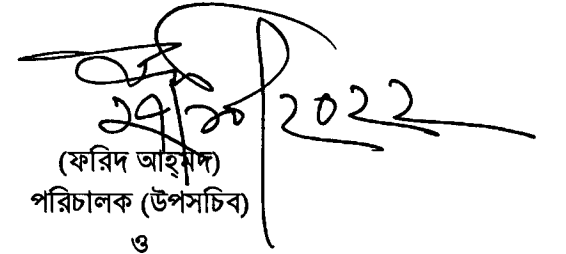 ২৭/১০/২০২২
(ফরিদ আহ্‌মদ)
পরিচালক (উপসচিব)
ও